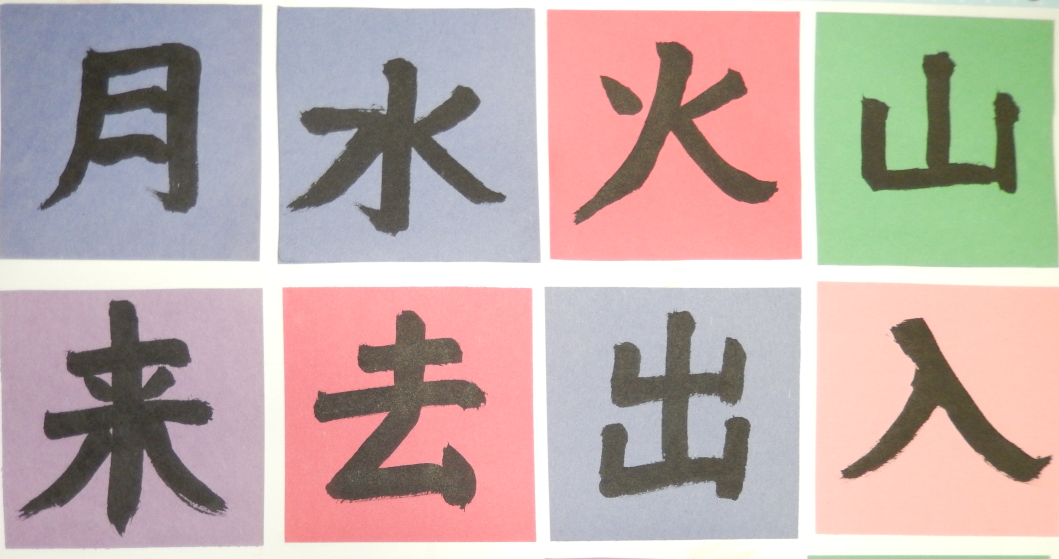 月水火山
来去出入